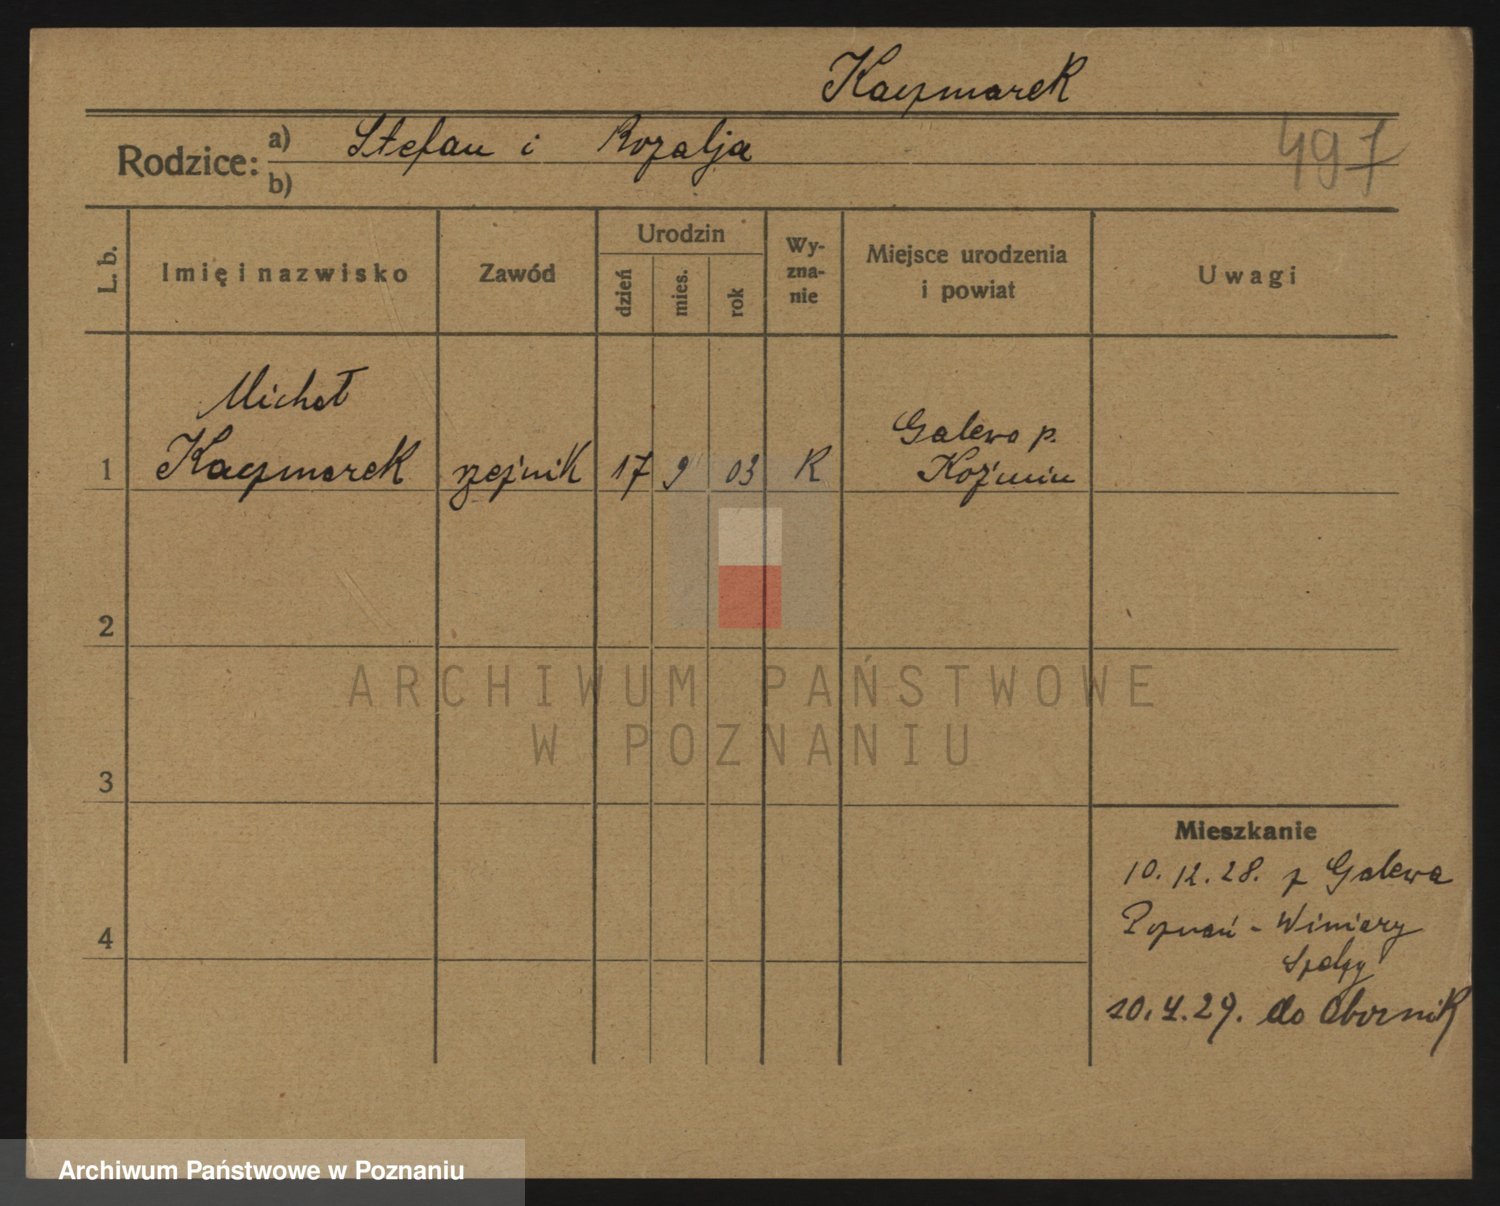 Kaczmarek
Rodzice: a) Stefan i Rozalja
b)
497
L. b. Imię i nazwisko Zawód Urodzin dzień mies. rok Wy-zna-nie Miejsce urodzenia i powiat Uwagi
Michał
Galewo p.
1 Kaczmarek rzeźnik 17 9 03 R Koźmin
2
ARCHIWUM PAŃSTWOWE
W POZNANIU
3
Mieszkanie
10.12.28. z Galewa
4 Poznań - Winiary
10.4.29. do Obornik
Archiwum Państwowe w Poznaniu